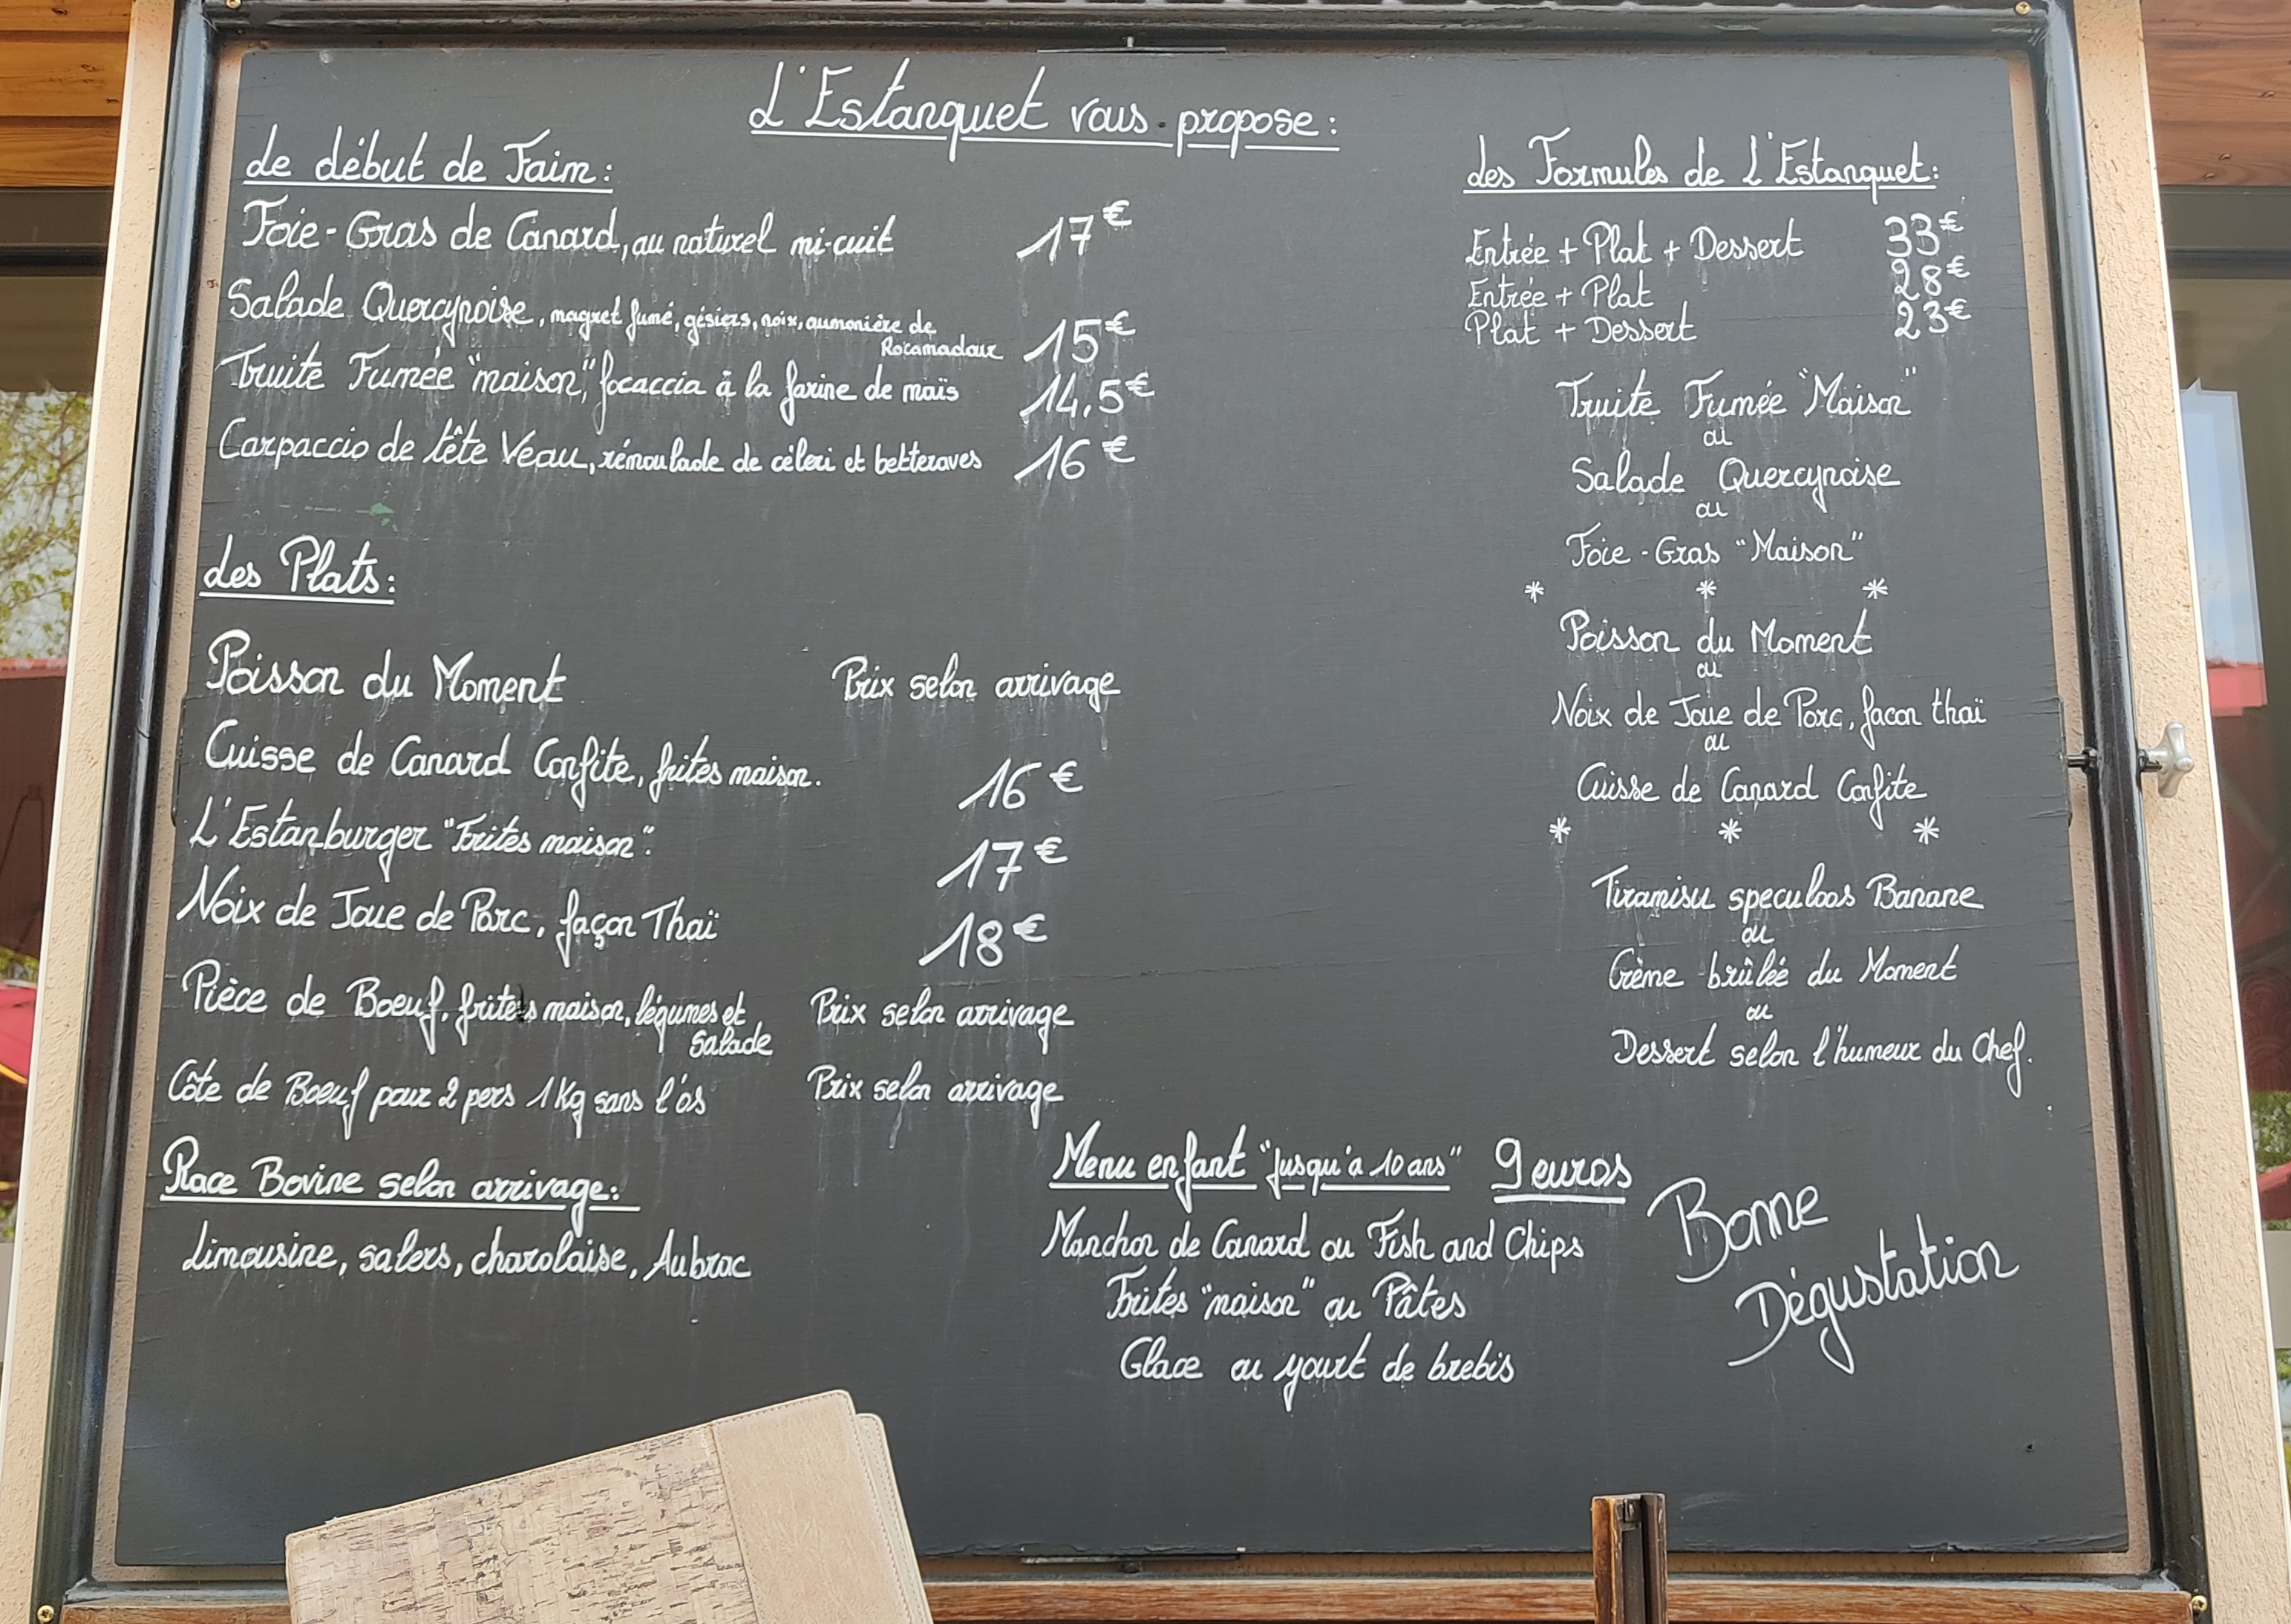 L'Estanquet vous propose :
Le début de Faim :
Foie-Gras de Canard, au naturel mi-cuit 17€
Salade Quercynoise, magret fumé, gésiers, noix, aumonière de
Rocamadour 15€
Truite Fumée "maison", focaccia à la farine de maïs 14,5€
Carpaccio de tête Veau, rémoulade de céleri et betteraves 16€
Les Plats :
Poisson du Moment Prix selon arrivage
Cuisse de Canard Confite, frites maison. 16€
L'Estanburger "Frites maison". 17€
Noix de Joue de Porc, façon Thaï 18€
Pièce de Boeuf, frites maison, légumes et Prix selon arrivage
Salade
Côte de Boeuf pour 2 pers 1Kg sans l'os Prix selon arrivage
Race Bovine selon arrivage :
Limousine, salers, charolaise, Aubrac
Les Formules de L'Estanquet :
Entrée + Plat + Dessert 33€
Entrée + Plat 28€
Plat + Dessert 23€
Truite Fumée "Maison"
ou
Salade Quercynoise
ou
Foie-Gras "Maison"
* * *
Poisson du Moment
ou
Noix de Joue de Porc, facon thaï
ou
Cuisse de Canard Confite
* * *
Tiramisu speculoos Banane
ou
Crème brûlée du Moment
ou
Dessert selon l'humeur du Chef.
Menu enfant "jusqu'a 10 ans" 9 euros
Manchon de Canard ou Fish and Chips
Frites "maison" ou Pâtes
Glace ou yourt de brebis
Bonne
Dégustation